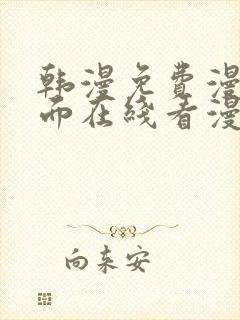 韩漫免费漫
而在线看漫
向来安